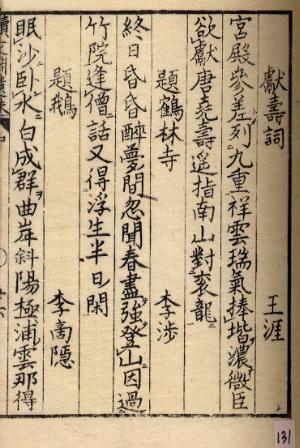 獻壽詞 王涯
宮殿參差列九重祥雲瑞氣捧堦濃微臣
欲獻唐堯壽遥指南山對衮龍
題鶴林寺 李涉
終日昏昏醉夢間忽聞春盡強登山因過
竹院逢僧話又得浮生半日閑
題鵝 李商隱
眠沙卧水自成群曲岸斜陽極浦雲那得
131